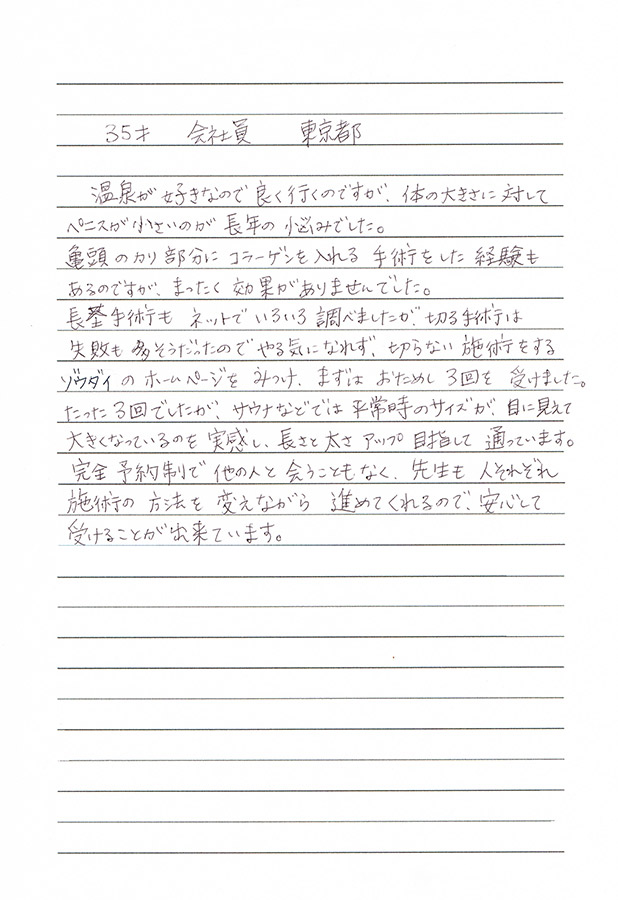 35才 会社員 東京都
温泉が好きなので良く行くのですが、体の大きさに対して
ペニスが小さいのが長年の悩みでした。
亀頭のカリ部分にコラーゲンを入れる手術をした経験も
あるのですが、まったく効果がありませんでした。
長茎手術もネットでいろいろ調べましたが、切る手術は
失敗も多そうだったのでやる気になれず、切らない施術をする
ゾウダイのホームページをみつけ、まずはおためし3回を受けました。
たった3回でしたが、サウナなどでは平常時のサイズが、目に見えて
大きくなっているのを実感し、長さと太さアップ目指して通っています。
完全予約制で他の人と会うこともなく、先生も人それぞれ
施術の方法を変えながら進めてくれるので、安心して
受けることが出来ています。